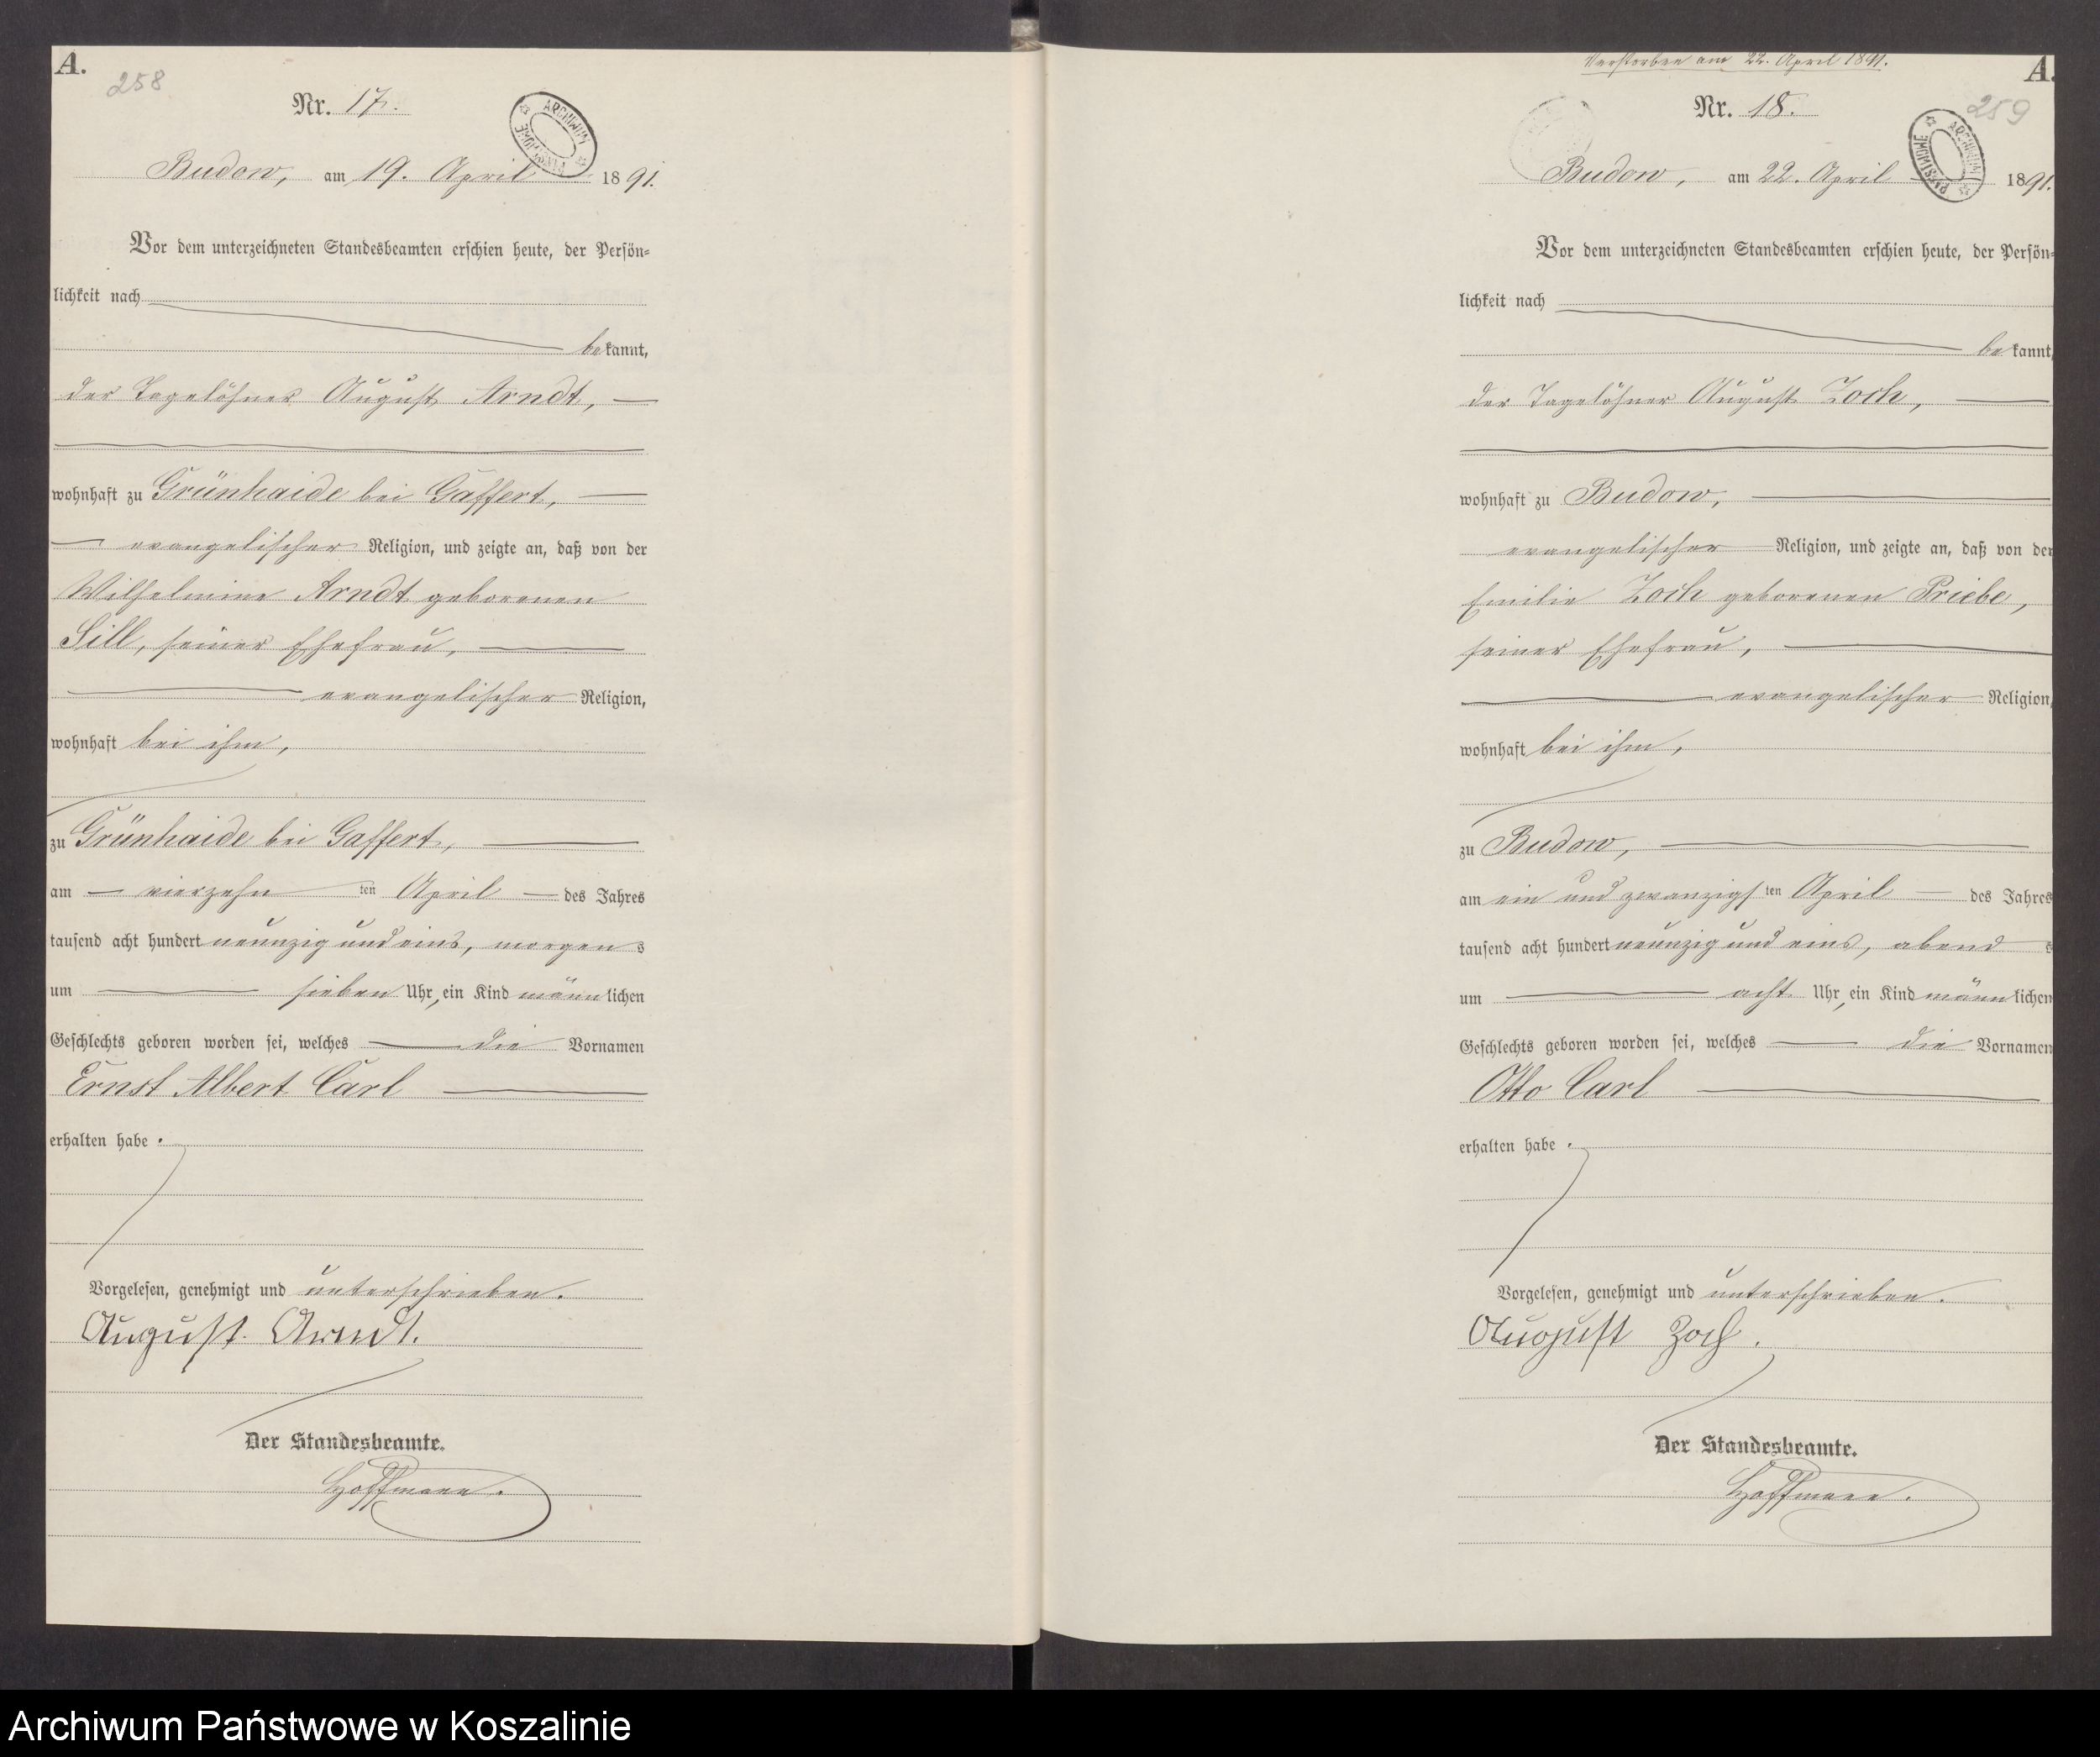 A.
258
Nr. 17.
ARCHIWUM PAŃSTWOWE
Budow, am 19. April 1891.
Vor dem unterzeichneten Standesbeamten erschien heute, der Persön-
lichkeit nach
bekannt,
der Tagelöhner August Arndt,
wohnhaft zu Grünhaide bei Gaffert,
evangelischer Religion, und zeigte an, daß von der
Wilhelmine Arndt geborenen
Sill, seiner Ehefrau,
evangelischer Religion,
wohnhaft bei ihm,
zu Grünhaide bei Gaffert,
am vierzehn ten April des Jahres
tausend acht hundert neunzig und eins, morgens
um sieben Uhr, ein Kind männlichen
Geschlechts geboren worden sei, welches die Vornamen
Ernst Albert Carl
erhalten habe.
Vorgelesen, genehmigt und unterschrieben.
August Arndt.
Der Standesbeamte.
Hoffmann.
Verstorben am 22. April 1891.
A.
259
Nr. 18.
ARCHIWUM PAŃSTWOWE
Budow, am 22. April 1891.
Vor dem unterzeichneten Standesbeamten erschien heute, der Persön-
lichkeit nach
bekannt,
der Tagelöhner August Zoch,
wohnhaft zu Budow,
evangelischer Religion, und zeigte an, daß von der
Emilie Zoch geborenen Priebe,
seiner Ehefrau,
evangelischer Religion,
wohnhaft bei ihm,
zu Budow,
am ein und zwanzigsten April des Jahres
tausend acht hundert neunzig und eins, abends
um acht Uhr, ein Kind männlichen
Geschlechts geboren worden sei, welches die Vornamen
Otto Carl
erhalten habe.
Vorgelesen, genehmigt und unterschrieben.
August Zoch.
Der Standesbeamte.
Hoffmann.
Archiwum Państwowe w Koszalinie